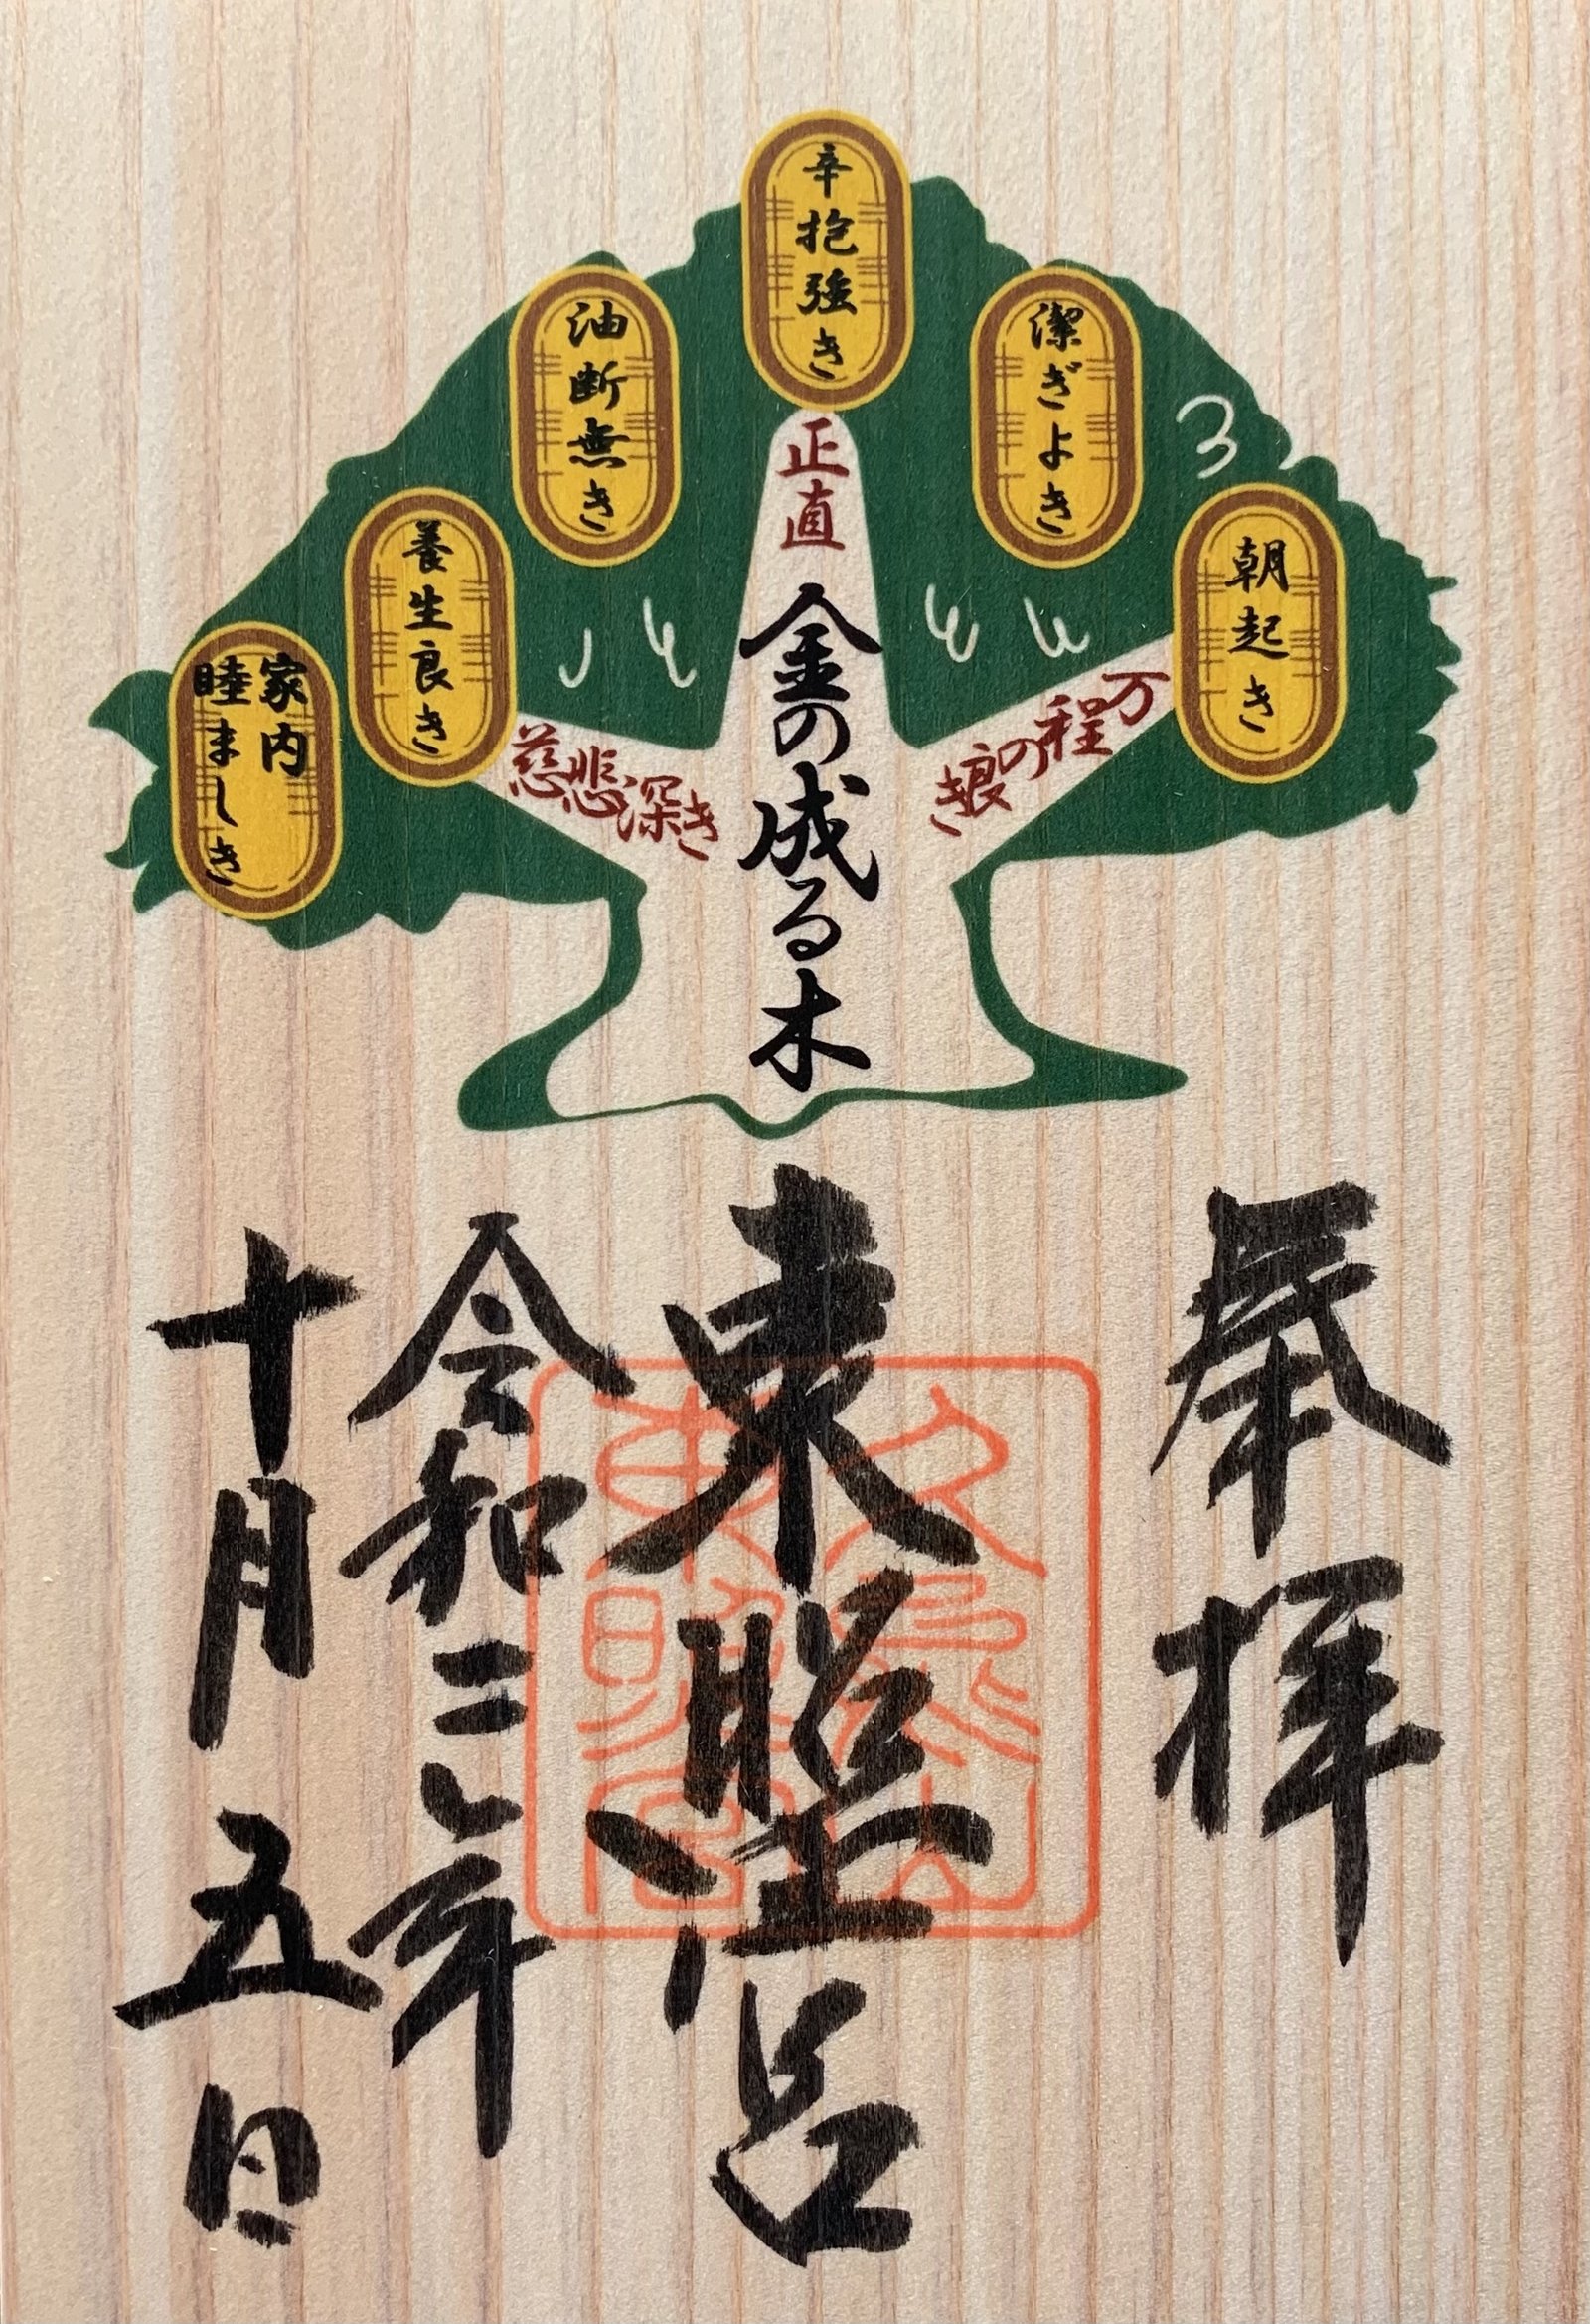 朝起き
潔ぎよき
辛抱強き
油断無き
養生良き
家内
睦ましき
正直
万程の良き
慈悲深き
金の成る木
奉拝
東照宮
令和三年
十月五日
久能山
東照宮